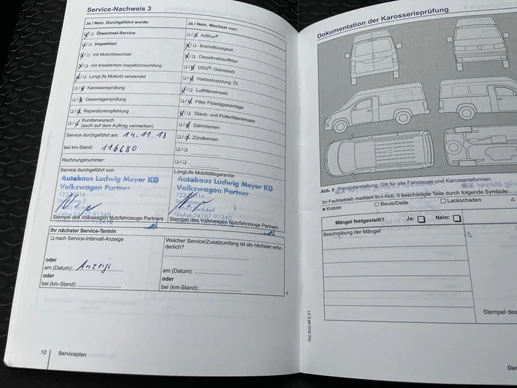 Service-Nachweis 3
Ja / Nein. Durchgeführt wurde:
Ölwechsel-Service
Inspektion
mit Motorölwechsel
mit erweitertem Inspektionsumfang
LongLife Motoröl verwendet
Karosserieprüfung
Gasanlagenprüfung
Reparaturempfehlung
Kundenwunsch
(auch auf dem Auftrag vermerken)
Service durchgeführt am: 14.11.18
bei km-Stand:
Rechnungsnummer:
Service durchgeführt von:
Autohaus Ludwig Meyer KG
Volkswagen Partner
Stempel des Volkswagen Nutzfahrzeuge Partners
Ja / Nein. Wechsel von:
AdBlue®
Bremsflüssigkeit
Dieselkraftstofffilter
DSG®-Getriebeöl
Haldexkupplung, Öl
Luftfiltereinsatz
Filter Flüssiggasanlage
Staub- und Pollenfiltereinsatz
Zahnriemen
Zündkerzen
LongLife Mobilitätsgarantie:
Autohaus Ludwig Meyer KG
Volkswagen Partner
Stempel des Volkswagen Nutzfahrzeuge Partners
Ihr nächster Service-Termin
nach Service-Intervall-Anzeige
oder
am (Datum): Anzeige
oder
bei (km-Stand):
Welcher Service/Zusatzumfang ist als nächster erforderlich?
am (Datum):
oder
bei (km-Stand):
12 Serviceplan
Dokumentation der Karosserieprüfung
Abb. 9 Prinzipdarstellung: Gilt für alle Fahrzeuge und Karosserieformen.
Ihr Fachbetrieb markiert in Abb. 9 beschädigte Teile durch folgende Symbole:
Kratzer
Beule/Delle
Lackschäden
Mängel festgestellt?
Ja:
Nein:
Beschreibung der Mängel:
Stempel des